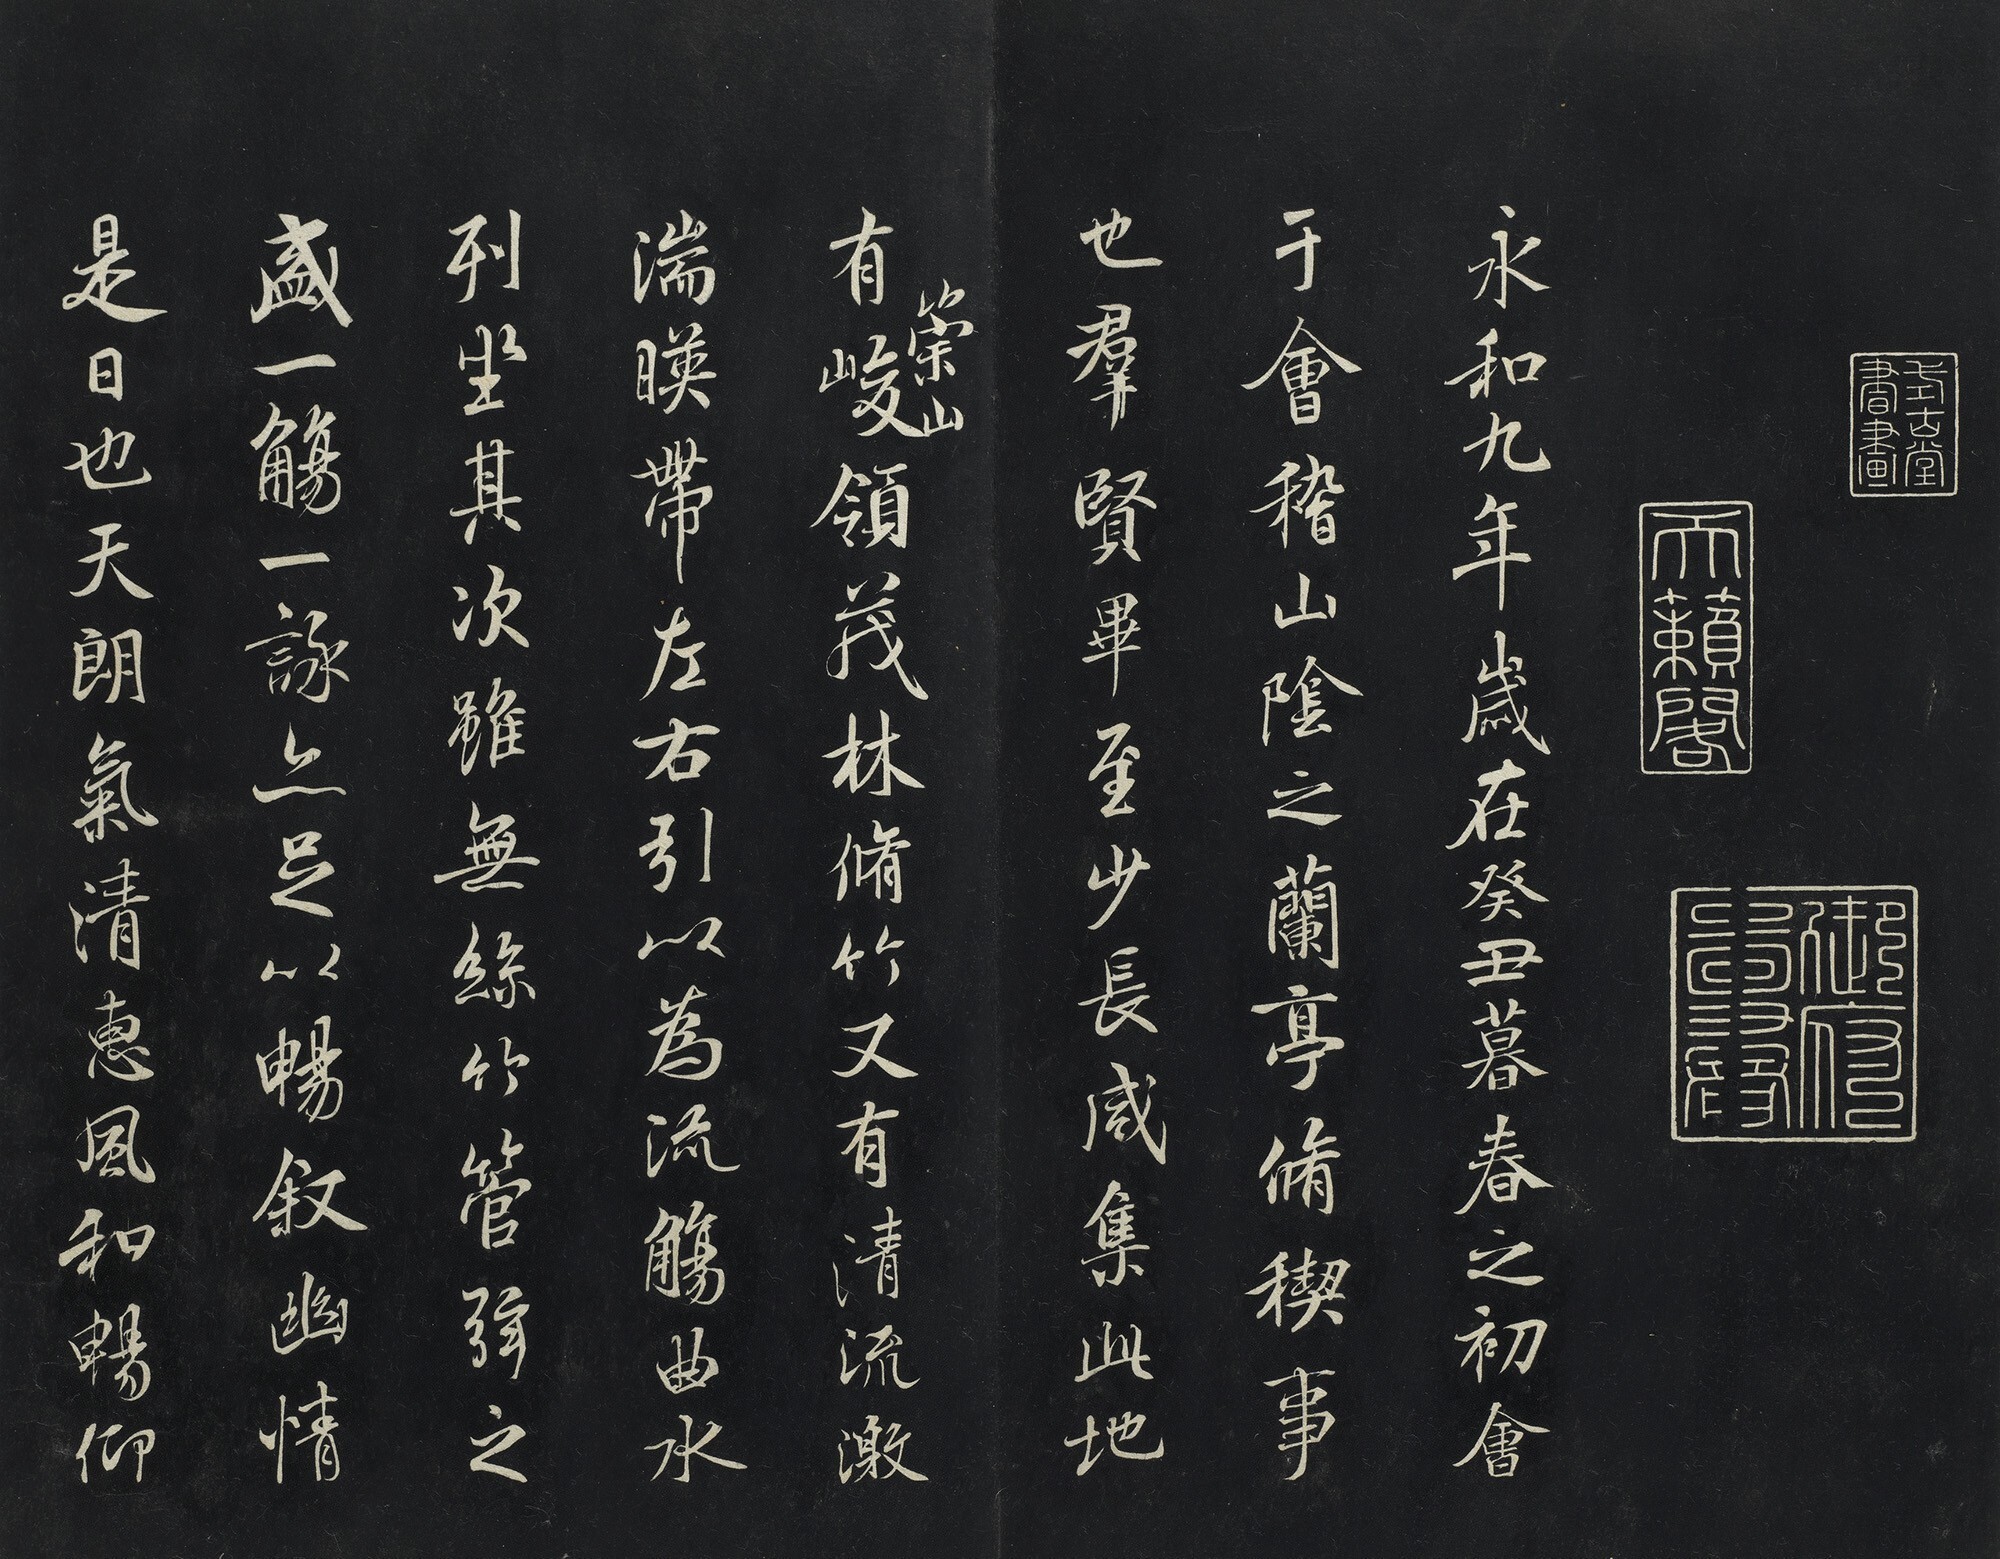 式古堂
書畫
天籟閣
永和九年歲在癸丑暮春之初會
于會稽山陰之蘭亭脩稧事
也羣賢畢至少長咸集此地
有峻領茂林脩竹又有清流激
崇山
湍暎帶左右引以為流觴曲水
列坐其次雖無絲竹管弦之
盛一觴一詠亦足以暢敘幽情
是日也天朗氣清惠風和暢仰